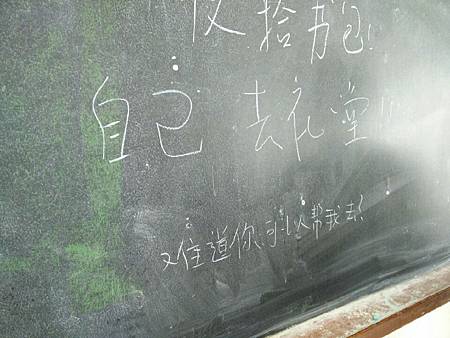 拾书包!
自己 去礼堂!!
难道你可以帮我去!